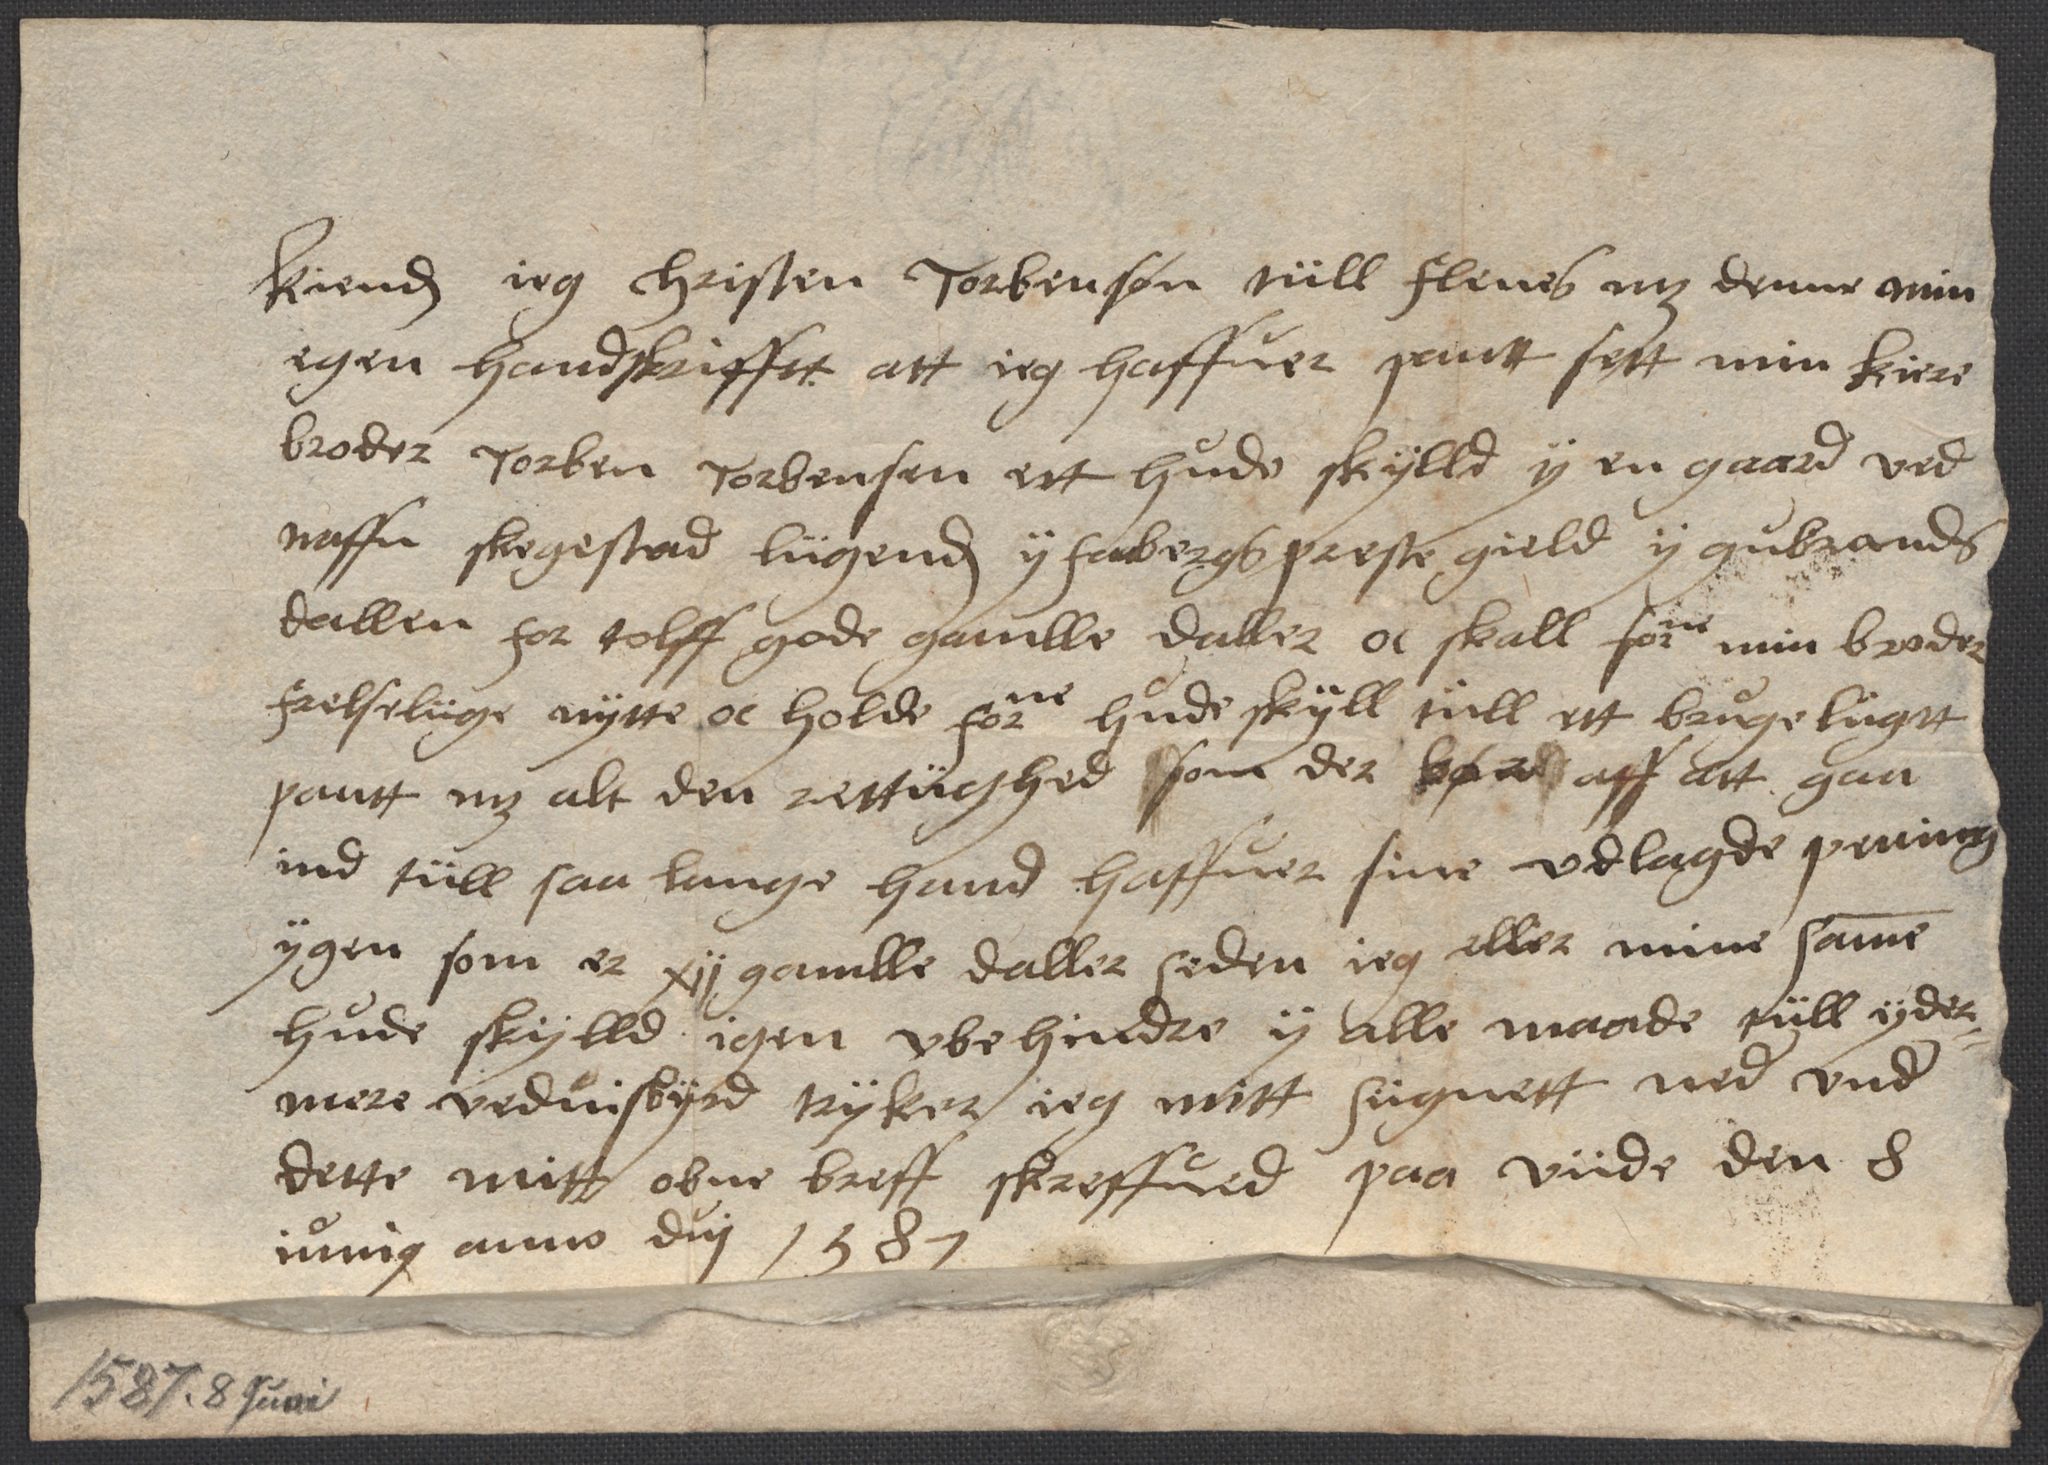 kiend ieg christen Torbensøn tiill flenes mz denne min
egen handskrifftt att ieg haffuer pantt sett min kiere
broder Torben Torbensen ett hude skylld y en gaard ved
naffn skegestad liigend y faabergs preste gield y gubrands
dallen for tolff gode gamlle daller oc skall forne min broder
frelseliige nytte oc holde forne hude skyll tiill ett brugeliigtt
pantt mz alt den rettiighed som der bør aff att gaa
ind tiill saa lange hand haffuer sine vdlagde pening
ygen som er xij gamlle daller seden ieg eller mine same
hude skylld igen vbehindre y alle maade tiill yder=
mere veduisbyrd tryker ieg mitt siignett ned vnd
dette mitt obne breff skreffued paa viide den 8
iunig anno dnj 1587
1587. 8 Juni